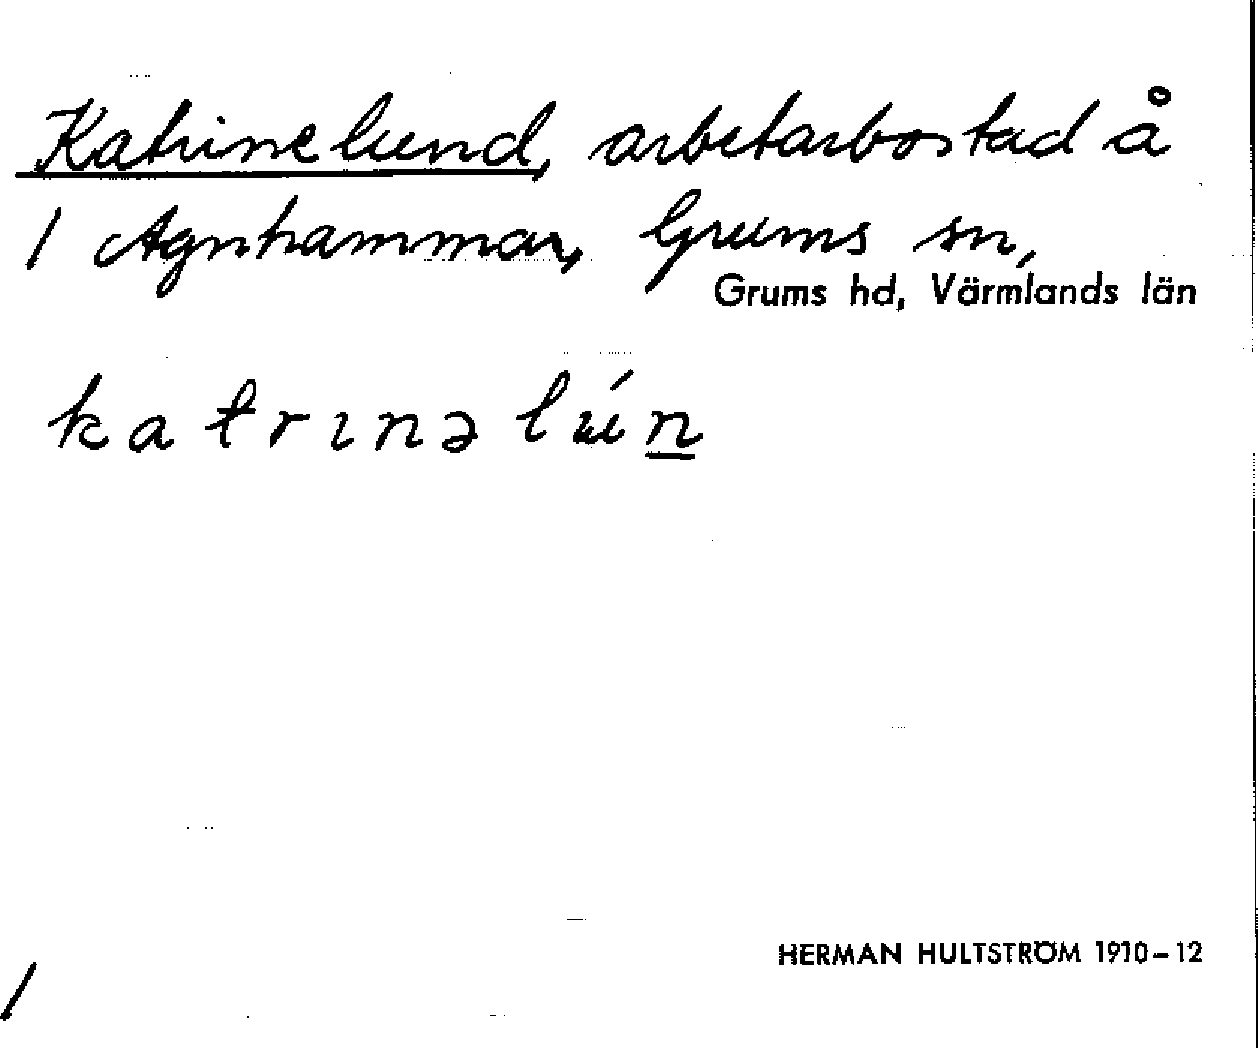 Katrinelund, arbetarbostad å
1 Agnhammar, Grums sn,
Grums hd, Värmlands län
katrınəlún
HERMAN HULTSTRÖM 1910-12
/